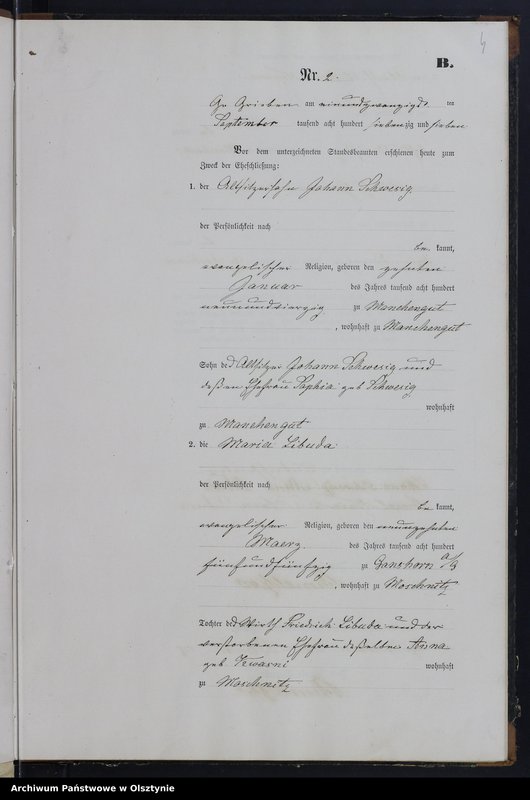 4
B.
Nr. 2.
Gr. Grieben am einundzwanzigst ten
September tausend acht hundert siebenzig und sieben
Vor dem unterzeichneten Standesbeamten erschienen heute zum
Zweck der Eheschließung:
1. der Altsitzersohn Johann Schwesig
der Persönlichkeit nach
be kannt,
evangelischer Religion, geboren den zehnten
Januar des Jahres tausend acht hundert
neunundvierzig zu Manchengut
, wohnhaft zu Manchengut
Sohn des Altsitzer Johann Schwesig und
deßen Ehefrau Sophia geb Schwesig
wohnhaft
zu Manchengut
2. die Maria Libuda
der Persönlichkeit nach
be kannt,
evangelischer Religion, geboren den neunzehnten
Maerz des Jahres tausend acht hundert
fünfundfünfzig zu Ganshorn
, wohnhaft zu Moschnitz
Tochter des Wirth Friedrich Libuda und der
verstorbenen Ehefrau deßelben Anna
geb. wohnhaft
zu Moschnitz
Archiwum Państwowe w Olsztynie